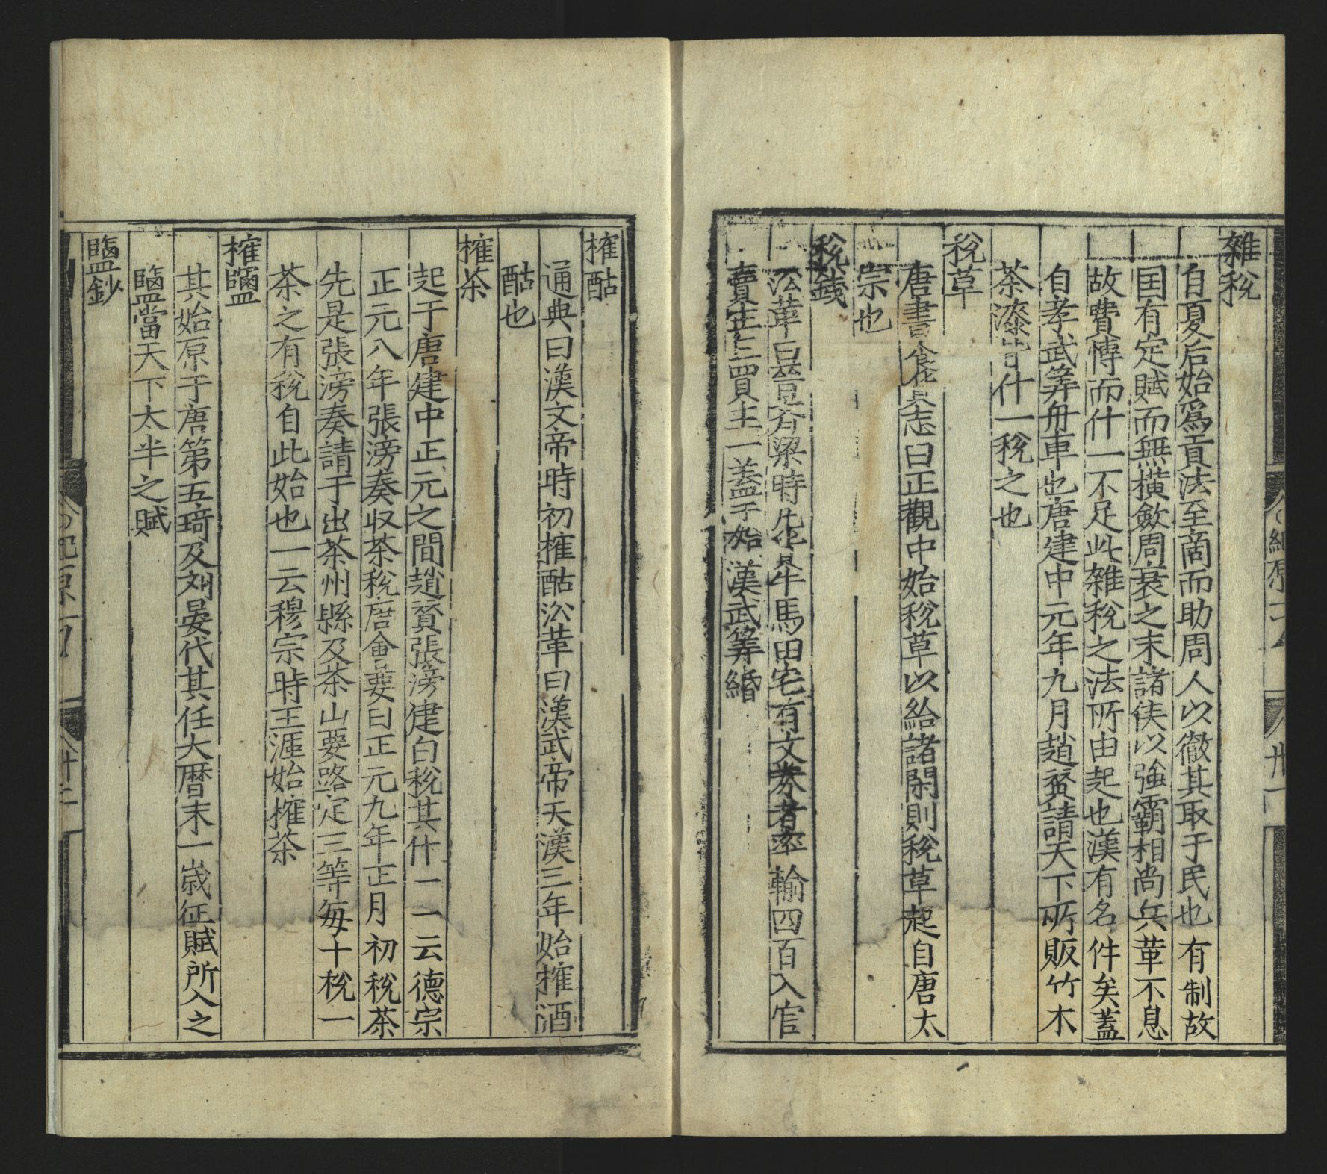 雜稅
自夏后始爲貢法至啇而助周人以徹其取于民也有制故
囯有定賦而無橫斂周衰之末諸侯以強霸相尚兵革不息
故費愽而什一不足此雜稅之法所由起也漢有名件矣蓋
自孝武筭舟車也唐建中元年九月趙賛請天下所販竹木
茶漆皆什一稅之也
稅草
唐書食貨志曰正觀中始稅草以給諸閑則稅草起自唐太
宗也
稅錢
沿革曰晋宋齊梁時凡貨牛馬田宅有文券者率輸四百入官
賣主三買主一蓋亦始漢武筭緡
榷酤
通典曰漢文帝時初榷酤沿革曰漢武帝天漢三年始榷酒
酤也
榷茶
起于唐建中正元之間趙賛張滂建白稅其什一一云德宗
正元八年張滂奏収茶稅唐會要曰正元九年正月初稅茶
先是張滂奏請于出茶州縣及茶山要路定三等每十稅一
茶之有稅自此始也一云穆宗時王涯始榷茶
榷鹽
其始原于唐第五琦及刘晏代其任大曆末一歲征賦所入之
鹽當天下太半之賦
鹽鈔